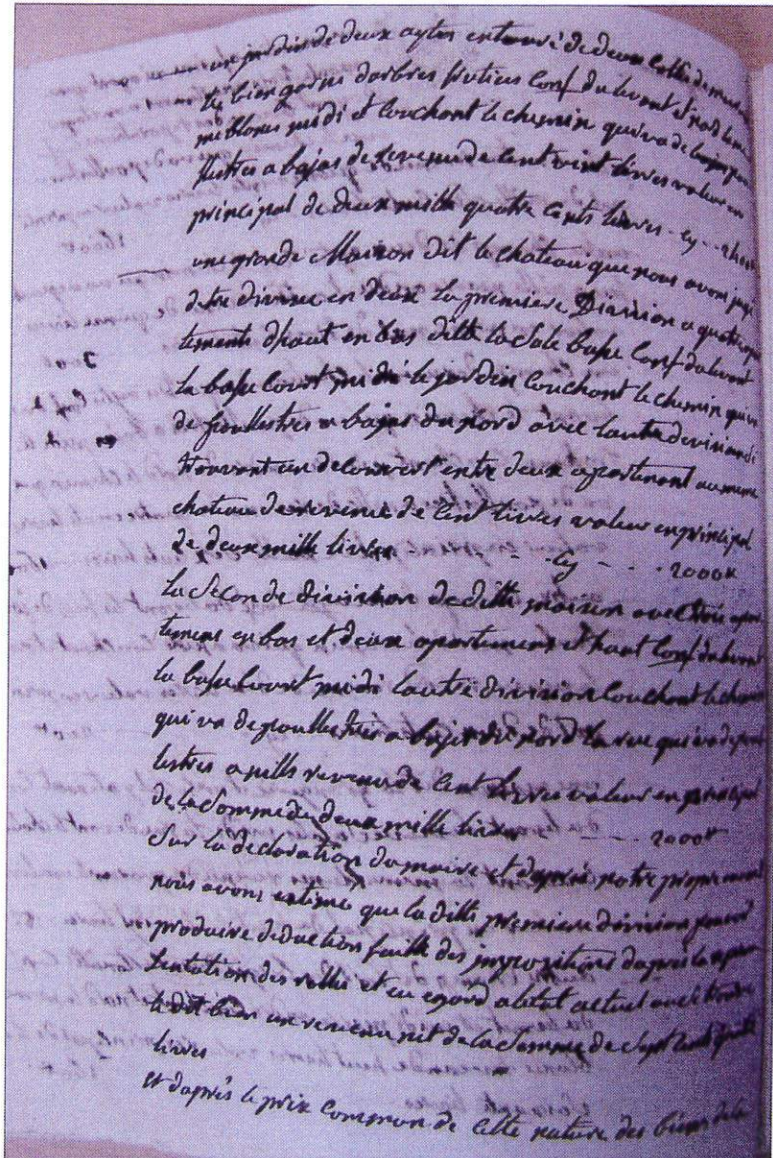 un jardin de deux aytes entouré de deux cottes de
tes bien garni darbres frutiers Conf du levant et nord
midi et Couchant le chemin qui va de
a bajas de revenu de Cent vint livres valeur en
principal de deux mille quatre Cents livres - cy - - 2400#
une grande Maison dit le chateau que nous avons
detre divisee en deux la premiere Division a quatre apar
tements dhaut en bas ditte la Sale basse Conf du levant
la basse Court midi le jardin Couchant le chemin qui va
de foullestres a bajas du nord avec lautre devision si
trouvant un decouvert entre deux apartenant au meme
chateau de revenu de Cent livres valeur en principal
de deux mille livres - - cy - - - - 2000#
la Seconde division de ditte maison avec trois apar
tement en bas et deux apartement et haut Conf du levant
la basse Court midi lautre division Couchant le chemin
qui va de foullestres a bajas du nord la rue qui va de foul
lestres a revenu de Cent livres valeur en principal
de la Somme de deux mille livres - - - - 2000#
Sur la declaration du maire et dapres notre propre
nous avons estimé que la ditte premiere division pouvoit
produire deduction faitte des impositions dapres la repre
sentation des rolles et eu egard a letat actuel
le dit bien un revenu nit de la Somme de Sept Cents
livres
et dapres le prix Commun de Cette nature des biens de la